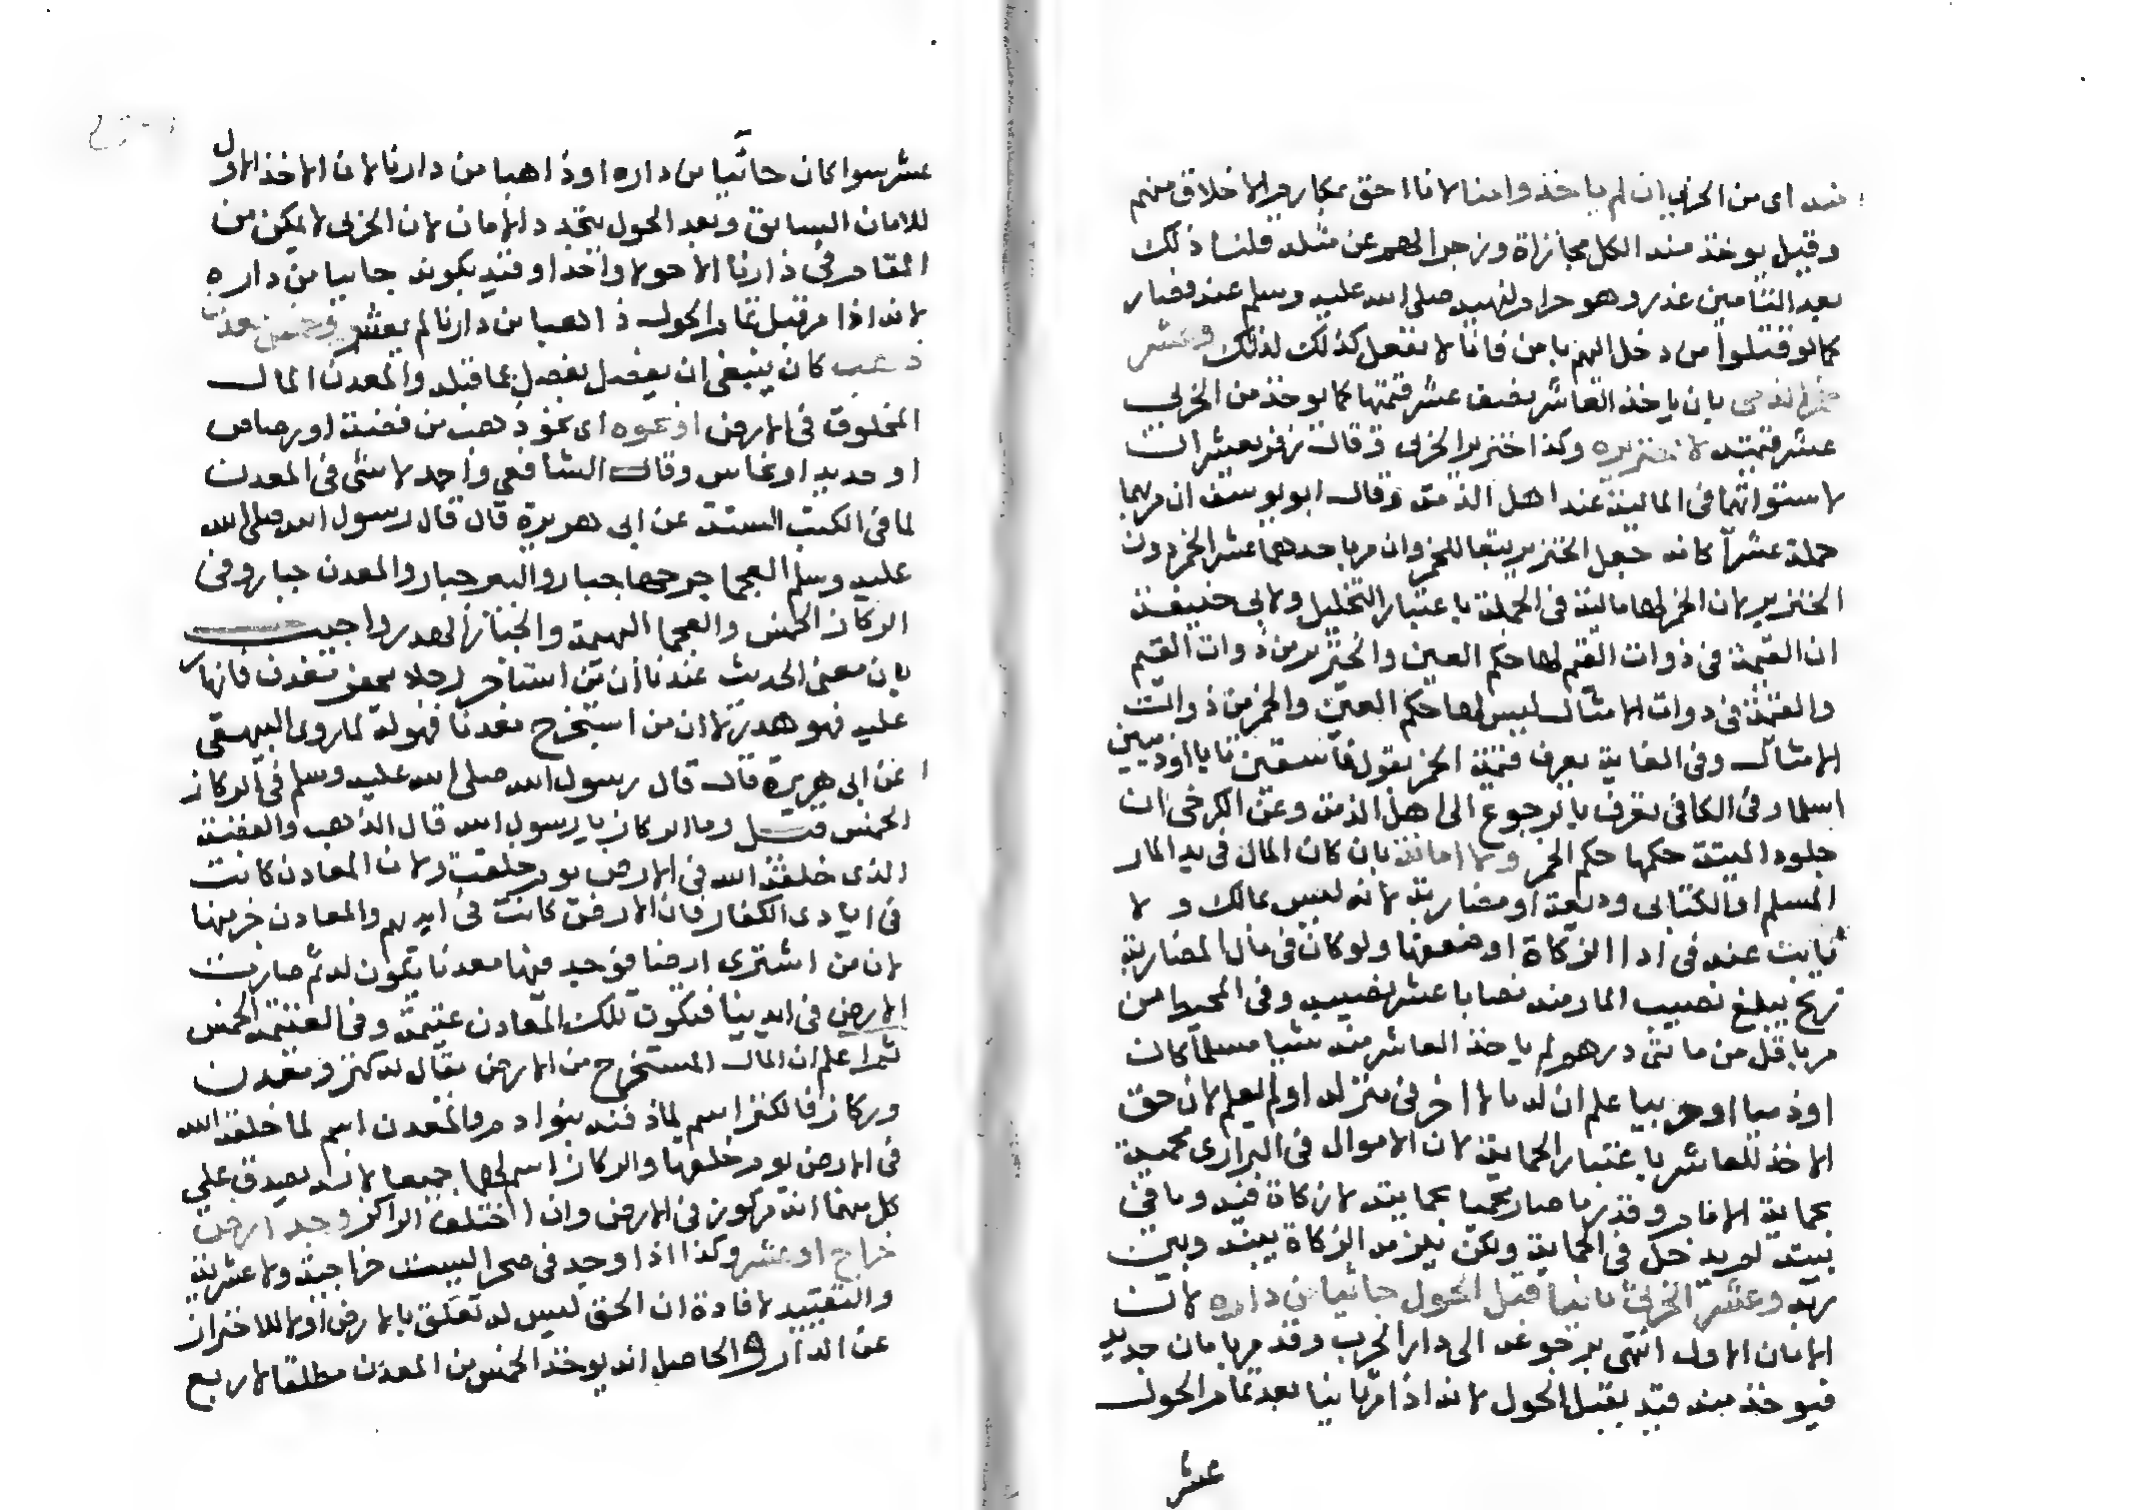 منه اى من الحربي ان لم ياخذوا منا لانا احق بمكارم الاخلاق منهم
وقيل يوخذ منه الكل مجازاة وزجرا لهم عن مثله قلنا ذلك
بعد التامين غدر وهو حرام لنهيه صلى الله عليه وسلم عنه فصار
كما لو قتلوا من دخل اليهم بامن فانا لا نفعل كذلك لذلك وعشر
خمر الذمى بان ياخذ العاشر نصف عشر قيمتها كما يوخذ من الحربي
عشر قيمته لا خنزيره وكذا خنزير الحربي وقال زفر يعشران
لاستوائهما في المالية عند اهل الذمة وقال ابو يوسف ان مر بهما
جملة عشرا كانه جعل الخنزير تبعا للخمر وان مر باحدهما عشر الخمر دون
الخنزير لان الخمر لها مالية في الجملة باعتبار التخليل ولابي حنيفة
ان القيمة في ذوات القيم لها حكم العين والخنزير من ذوات القيم
والقيمة في ذوات الامثال ليس لها حكم العين والخمر من ذوات
الامثال وفي الغاية يعرف قيمة الخمر بقول فاسقين تابا او ذميين
اسلما وفي الكافي تعرف بالرجوع الى اهل الذمة وعن الكرخي ان
جلود الميتة حكمها حكم الخمر ولا امانة بان كان المال في يد المار
المسلم او الكتابي وديعة او مضاربة لانه ليس بمالك و لا
نائب عنه في ادا الزكاة او ضعفها ولو كان في مال المضاربة
ربح يبلغ نصيب المار منه نصابا عشر نصيبه وفي المحيط من
مر باقل من مائتى درهم لم ياخذ العاشر منه شيا مسلما كان
او ذميا او حربيا علم ان له مالا اخر في منزله او لم يعلم لان حق
الاخذ للعاشر باعتبار الحماية لان الاموال في البرارى محمية
بحماية الامام وقدر ما صار محميا بحمايته لا زكاة فيه وما في
بيته لم يدخل في الحماية ولكن يلزمه الزكاة بينه وبين
ربه وعشر الحربي ثانيا قبل الحول جائيا من داره لان
الامان الاول انتهى برجوعه الى دار الحرب وقد مر بامان جديد
فيوخذ منه قيد بقبل الحول لانه اذا مر ثانيا بعد تمام الحول
عشر
عشر سوا كان جائيا من داره او ذاهبا من دارنا لان الاخذ الاول
للامان السابق وبعد الحول يتجدد الامان لان الحربي لا يمكن من
المقام في دارنا الا حولا واحدا وقيد بكونه جائيا من داره
لانه اذا مر قبل تمام الحول ذاهبا من دارنا لم يعشر
كان ينبغى ان يفصل بفصل عما قبله والمعدن المال
المخلوق في الارض او نحوه اى نحو ذهب من فضة او رصاص
او حديد او نحاس وقال الشافعي واحمد لا شى في المعدن
لما في الكتب الستة عن ابى هريرة قال قال رسول الله صلى الله
عليه وسلم العجما جرحها جبار والبير جبار والمعدن جبار وفي
الركاز الخمس والعجما البهيمة والجبار الهدر واجيب
بان معنى الحديث عندنا ان من استاجر رجلا بحفر معدن فانهار
عليه فهو هدر لا ان من استخرج معدنا فهو له لما روى البيهقي
عن ابى هريرة قال قال رسول الله صلى الله عليه وسلم في الركاز
الخمس قيل وما الركاز يا رسول الله قال الذهب والفضة
الذى خلقه الله في الارض يوم خلقت ولان المعادن كانت
في ايادى الكفار فان الارض كانت في ايديهم والمعادن جز منها
لان من اشترى ارضا فوجد فيها معدنا يكون له ثم صارت
الارض في ايدينا فيكون تلك المعادن غنيمة وفي الغنيمة الخمس
ثم اعلم ان المال المستخرج من الارض يقال له كنز ومعدن
وركاز فالكنز اسم لما دفنه بنو ادم والمعدن اسم لما خلقه الله
في الارض يوم خلقها والركاز اسم لهما جميعا لانه يصدق على
كل منهما انه مركوز في الارض وان اختلف الراكز وجد في ارض
خراج او عشر وكذا اذا وجد في صحرا ليست خراجية ولا عشرية
والتقييد لافادة ان الحق ليس له تعلق بالارض اولا للاحتراز
عن الدار والحاصل انه يوخذ الخمس من المعدن مطلقا لا ربع